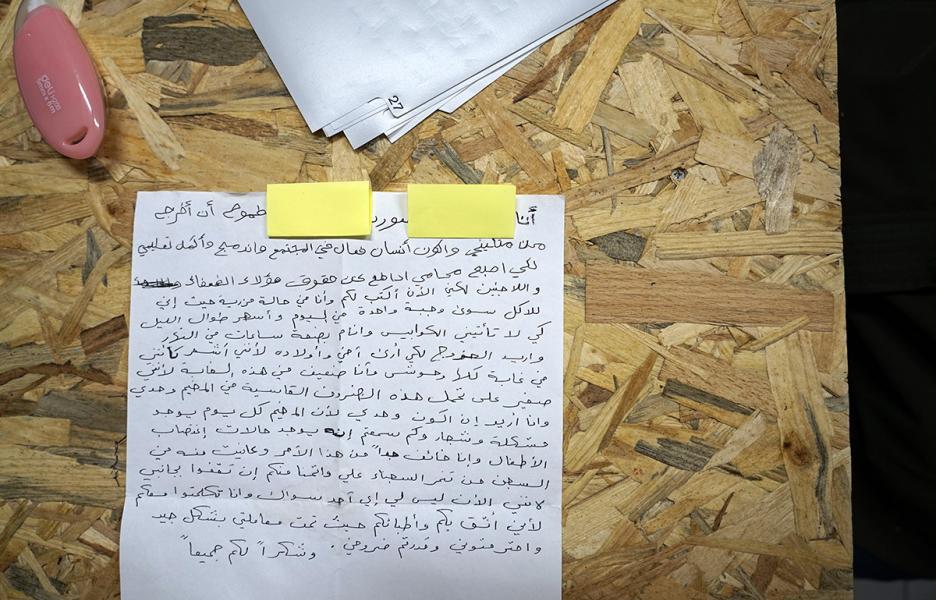 deli H200
5mm x 6m
27
أنا سوري طموحي أن أتخرج
من مثليني وأكون أنسان فعال في المجتمع واندمج وأكمل تعليمي
لكي اصبح محامي ادافع عن حقوق هؤلاء الضعفاء
و اللاجئين لكن الأن أكتب لكم وأنا في حالة مزرية حيث إني
للأكل سوى وجبة واحدة في ليوم و أسهر طوال الليل
كي لا تأتيني الكوابيس وانام بضعة ساعات من النهار
واريد الخروج لكي أرى أخي وأولاده لأنني أشعر كأنني
في غابة كلا وحوش وأنا ضعيف في هذه الغابة لأنني
صغير على تحمل هذه الظروف القاسية في المخيم وحدي
وانا أريد إن اكون وحدي لأن المخيم كل يوم يوجد
مشكلة وشجار وكم سمعتم إنه يوجد حالات إغتصاب
الأطفال وإنا خائف جداً من هذا الأمر وعانيت منه في
السجن من تنمر السجناء علي واتمنا منكم إن تقفوا بجانبي
لأنني الأن ليس لي إي أحد سواك وانا تكلمتوا معكم
لأني أثق بكم وأطبائكم حيث تمت معاملتي بشكل جيد
واحترمتوني وقدرتم ضروفي . وشكراً لكم جميعاً